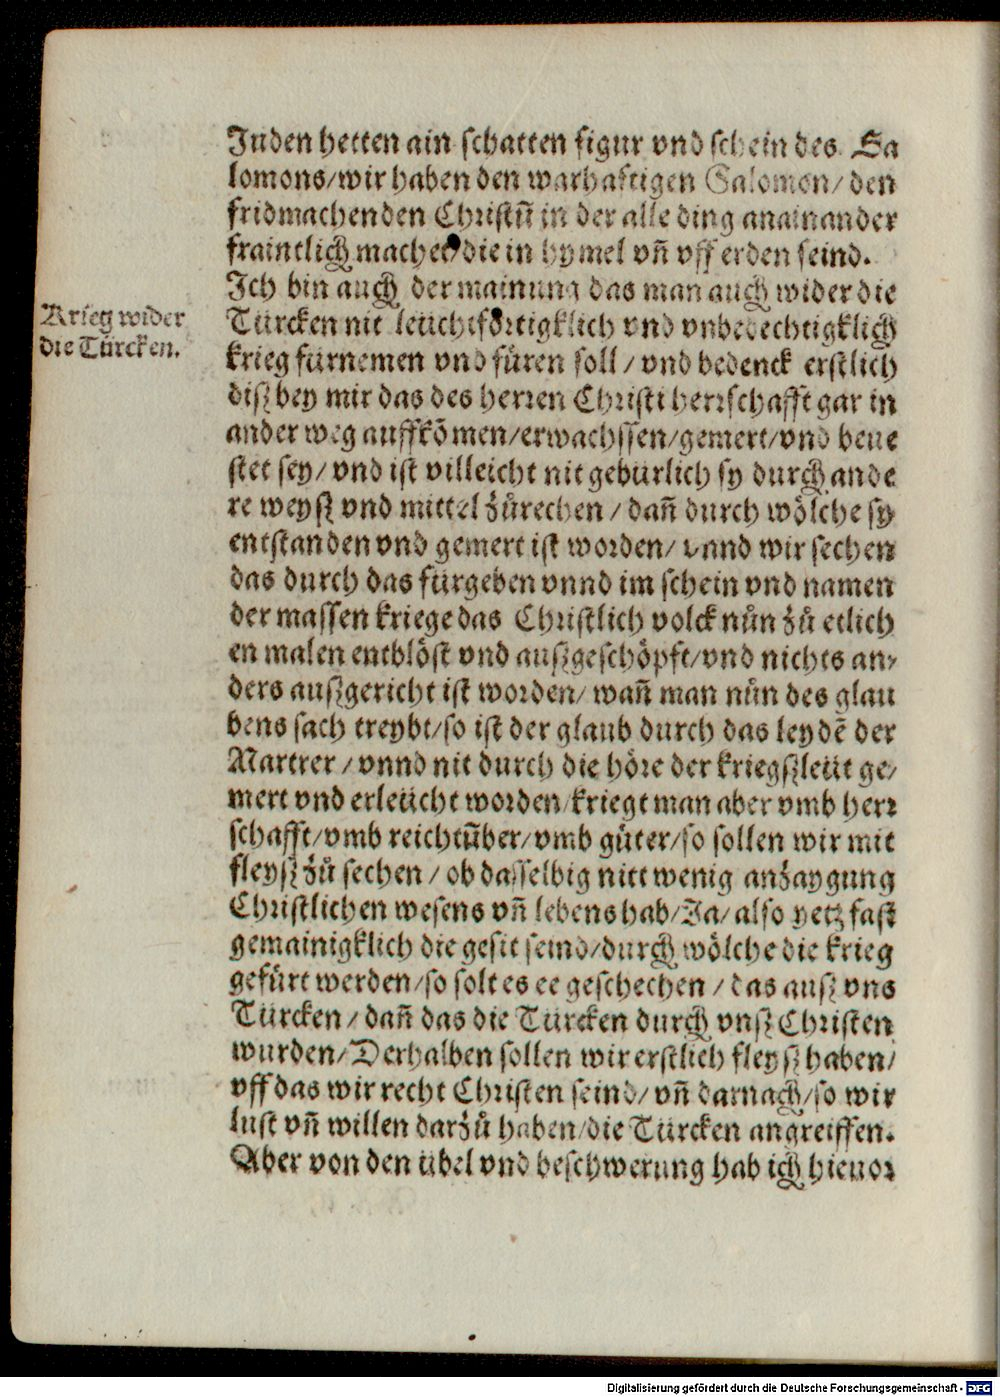 Juden hetten ain schatten figur vnd schein des Sa
lomons/wir haben den warhafftigen Salomon/den
fridmachenden Christū in der alle ding anainander
fraintlich machet die in hymel vn̄ vff erden seind.
Ich bin auch der mainung das man auch wider die
Krieg wider
die Türcken.
Türcken nit leüchtförtigklich vnd vnbedechtigklich
krieg fürnemen vnd füren soll / vnd bedenck erstlich
disz bey mir das des herren Christi herrschafft gar in
ander weg auffkōmen/erwachssen/gemert/vnd beue
stet sey/ vnd ist villeicht nit gebürlich sy durch ande
re weysz vnd mittel zůrechen / dan̄ durch wölche sy
entstanden vnd gemert ist worden/ vnnd wir sechen
das durch das fürgeben vnnd im schein vnd namen
der massen kriege das Christlich volck nůn zů etlich
en malen entblöst vnd auszgeschöpft/vnd nichts an-
ders auszgericht ist worden/ wan̄ man nůn des glau
bens sach treybt/so ist der glaub durch das leydē der
Martrer / vnnd nit durch die höre der kriegszleüt ge/
mert vnd erleücht worden/kriegt man aber vmb herr
schafft/vmb reichtūber/vmb güter/so sollen wir mit
fleysz zů sechen / ob dasselbig nitt wenig anzaygung
Christlichen wesens vn̄ lebens hab/Ja/ also yetz fast
gemainigklich die gesit seind/durch wölche die krieg
gefürt werden/so solt es ee geschechen / das ausz vns
Türcken / dan̄ das die Türcken durch vnsz Christen
wurden/Derhalben sollen wir erstlich fleysz haben/
vff das wir recht Christen seind/ vn̄ darnach/so wir
lust vn̄ willen darzů haben/die Türcken angreiffen.
Aber von den übel vnd beschwerung hab ich hieuor
Digitalisierung gefördert durch die Deutsche Forschungsgemeinschaft - DFG